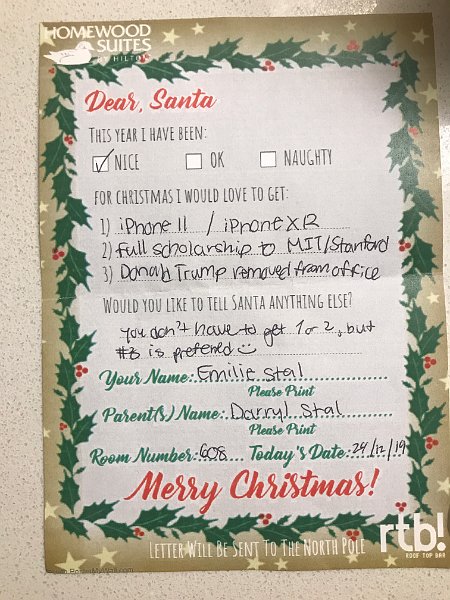 HOMEWOOD
SUITES
BY HILTON
Dear, Santa
THIS YEAR I HAVE BEEN:
NICE OK NAUGHTY
FOR CHRISTMAS I WOULD LOVE TO GET:
1) iPhone 11 / iPhone XR
2) Full scholarship to MIT/Stanford
3) Donald Trump removed from office
WOULD YOU LIKE TO TELL SANTA ANYTHING ELSE?
You don't have to get 1 or 2, but
#3 is preferred
Your Name: Emilie Stal
Please Print
Parent(s) Name: Darryl Stal
Please Print
Room Number: 608 Today's Date: 24/12/19
Merry Christmas!
LETTER WILL BE SENT TO THE NORTH POLE
rtb!
ROOF TOP BAR